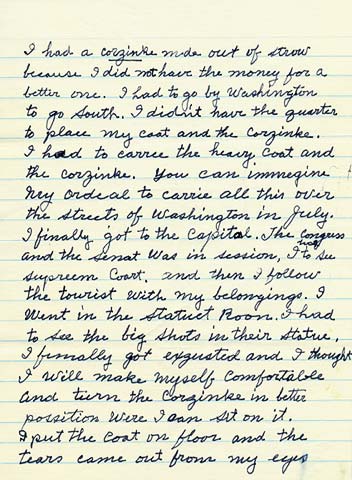 I had a corzinke made out of strow
because I did not have the money for a
better one. I had to go by Washington
to go South. I didn't have the quarter
to place my coat and the Corzinke.
I had to carree the heavy coat and
the corzinke. You can immegine
my ordeal to carrie all this over
the streets of Washington in July.
I finally got to the Capital. The Congress
and the Senat was in session, I to see
supreem Coort. and then I follow
the tourist with my belongings. I
went in the Statuct Room. I had
to see the big shots in their statue.
I finnally got exgusted and I thought
I will make myself comfortable
and tiern the Corzinke in better
possition were I can sit on it.
I put the coat on floor and the
tears came out from my eyes